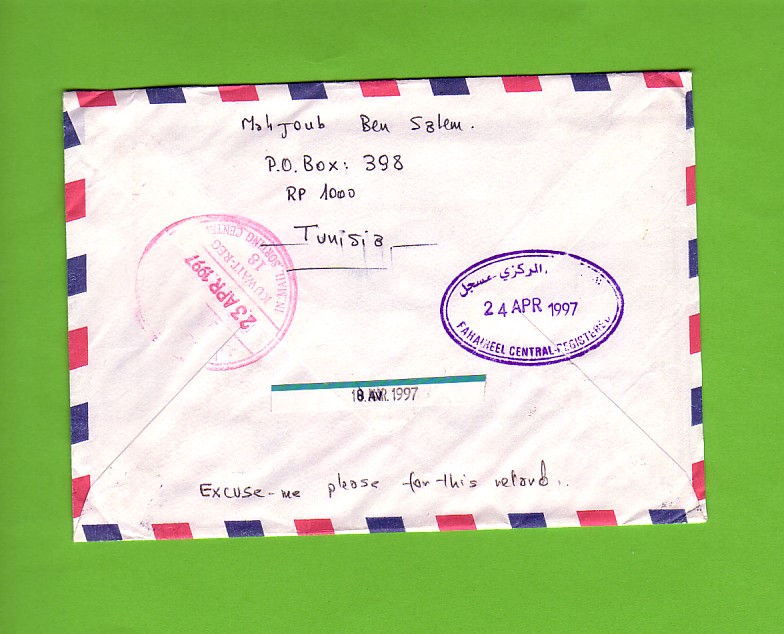 Mahjoub Ben Salem.
P.O. Box: 398
RP 1000
Tunisia
MAIL SORTING CENTRE
KUWAIT-REG
18
23 APR 1997
المركزي - مسجل
24 APR 1997
FAHAHEEL CENTRAL-REGISTERED
1997
Excuse-me please for this retard..